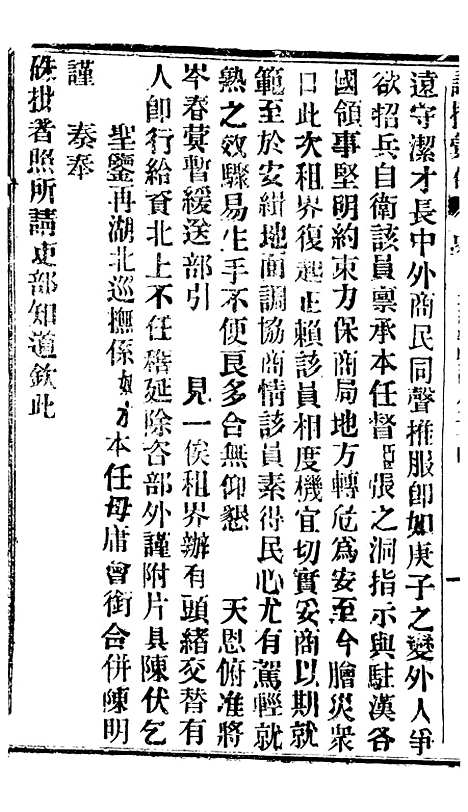 遠守潔才長中外商民同聲推服卽如庚子之變外人爭
欲招兵自衛該員禀承本任督臣張之洞指示與駐漢各
國領事堅明約束力保商局地方轉危爲安至今膾炙衆
口此次租界復起正賴該員相度機宜切實妥商以期就
範至於安緝地面調協商情該員素得民心尤有駕輕就
熟之效驟易生手不便良多合無仰懇 天恩俯准將
岑春蓂暫緩送部引 見一俟租界辦有頭緒交替有
人卽行給資北上不任稽延除咨部外謹附片具陳伏乞
聖鑒再湖北巡撫係 本任毋庸會銜合併陳明
謹 奏奉
硃批著照所請吏部知道欽此